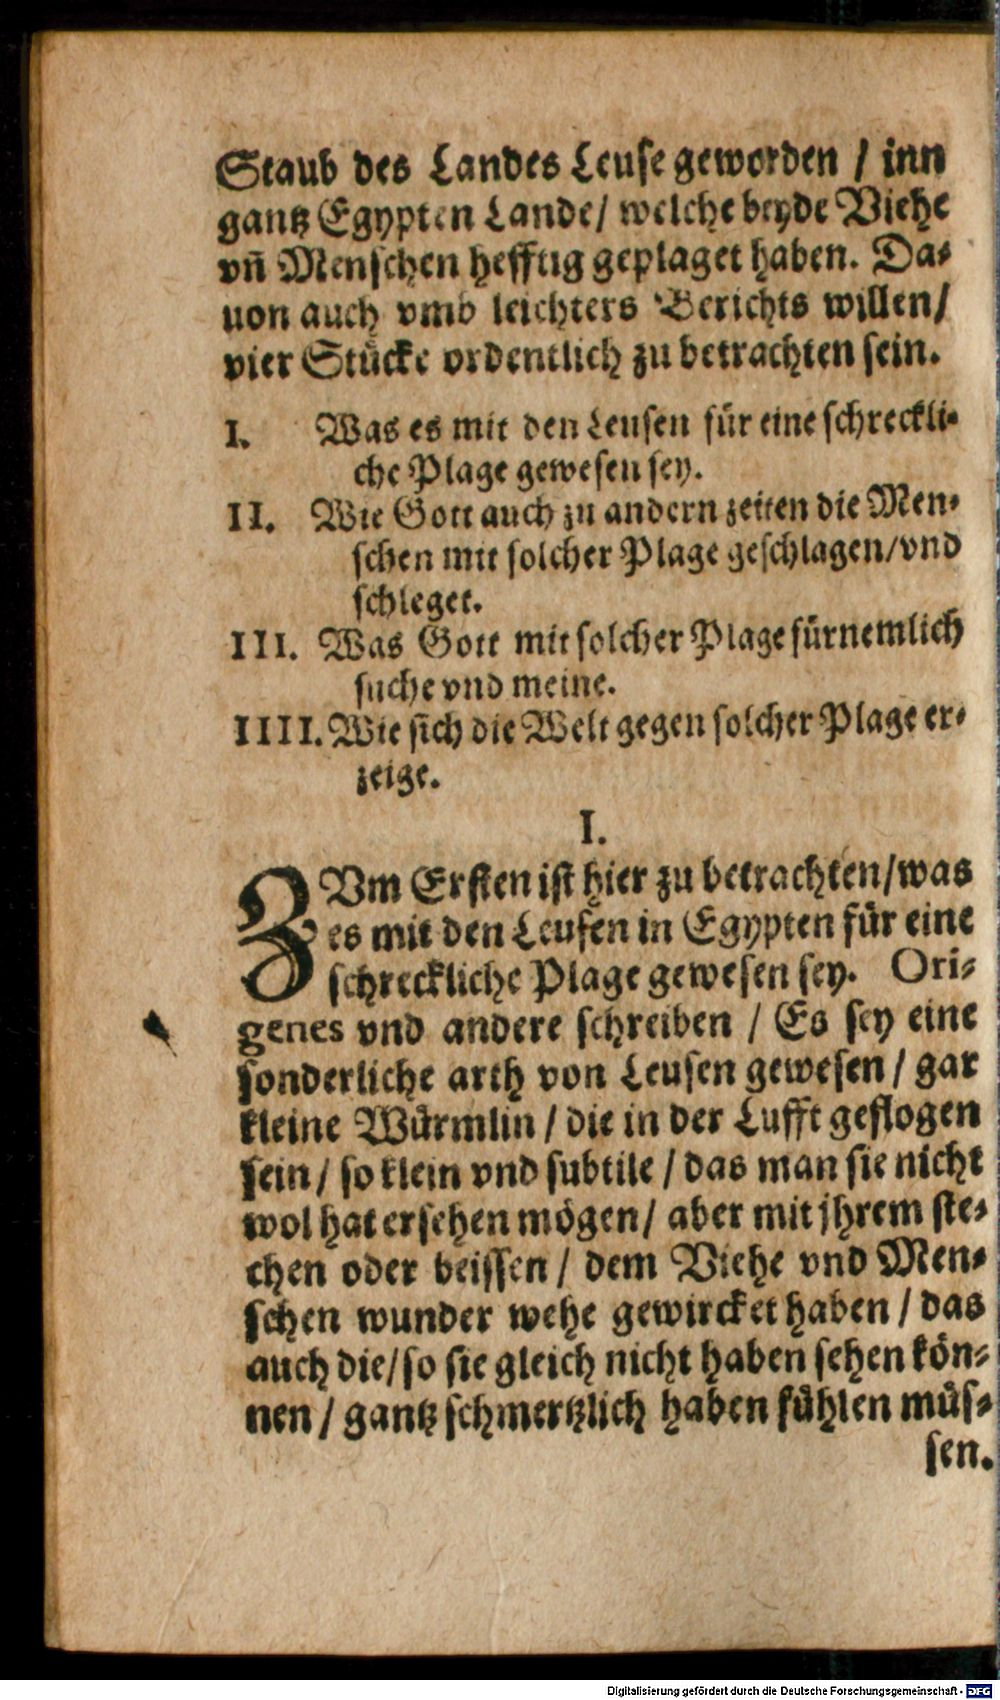 Staub des Landes Leuse geworden / inn
gantz Egypten Lande / welche beyde Viehe
vn̄ Menschen hefftig geplaget haben. Da-
uon auch vmb leichters Berichts willen /
vier Stücke ordentlich zu betrachten sein.
I. Was es mit den Leusen für eine schreckli-
che Plage gewesen sey.
II. Wie Gott auch zu andern zeiten die Men-
schen mit solcher Plage geschlagen / vnd
schleget.
III. Was Gott mit solcher Plage fürnemlich
suche vnd meine.
IIII. Wie sich die Welt gegen solcher Plage er-
zeige.
I.
ZVm Ersten ist hier zu betrachten / was
es mit den Leusen in Egypten für eine
schreckliche Plage gewesen sey. Ori-
genes vnd andere schreiben / Es sey eine
sonderliche arth von Leusen gewesen / gar
kleine Würmlin / die in der Lufft geflogen
sein / so klein vnd subtile / das man sie nicht
wol hat ersehen mögen / aber mit jhrem ste-
chen oder beissen / dem Viehe vnd Men-
schen wunder wehe gewircket haben / das
auch die / so sie gleich nicht haben sehen kön-
nen / gantz schmertzlich haben fühlen müs-
sen.
Digitalisierung gefördert durch die Deutsche Forschungsgemeinschaft - DFG